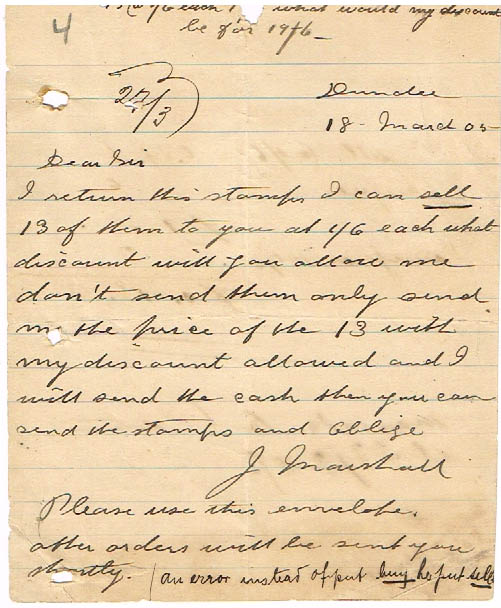 13 @ 1/6 each what would my discount
be for 19/6 –
4
27/3
Dundee
18 - March 03
Dear Sir
I return this stamps I can sell
13 of them to you at 1/6 each what
discount will you allow me
don't send them only send
me the price of the 13 with
my discount allowed and I
will send the cash then you can
send the stamps and oblige
J Marshall
Please use this envelope.
other orders will be sent you
shortly. / an error instead of put buy he put sell